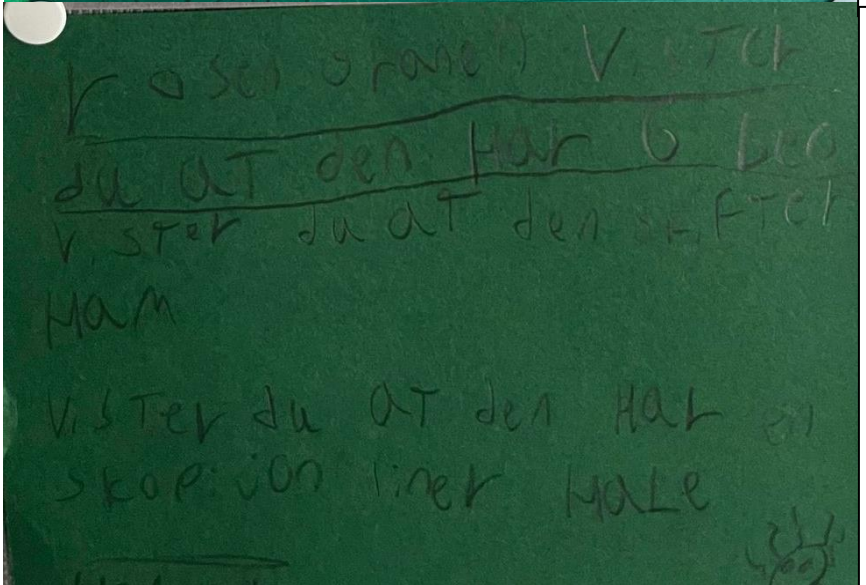 rosen oranen Vister
du aT den Har 6 beo
Vister du aT den skifTer
HaM
VisTer du aT den Har en
skopijon liner HaLe